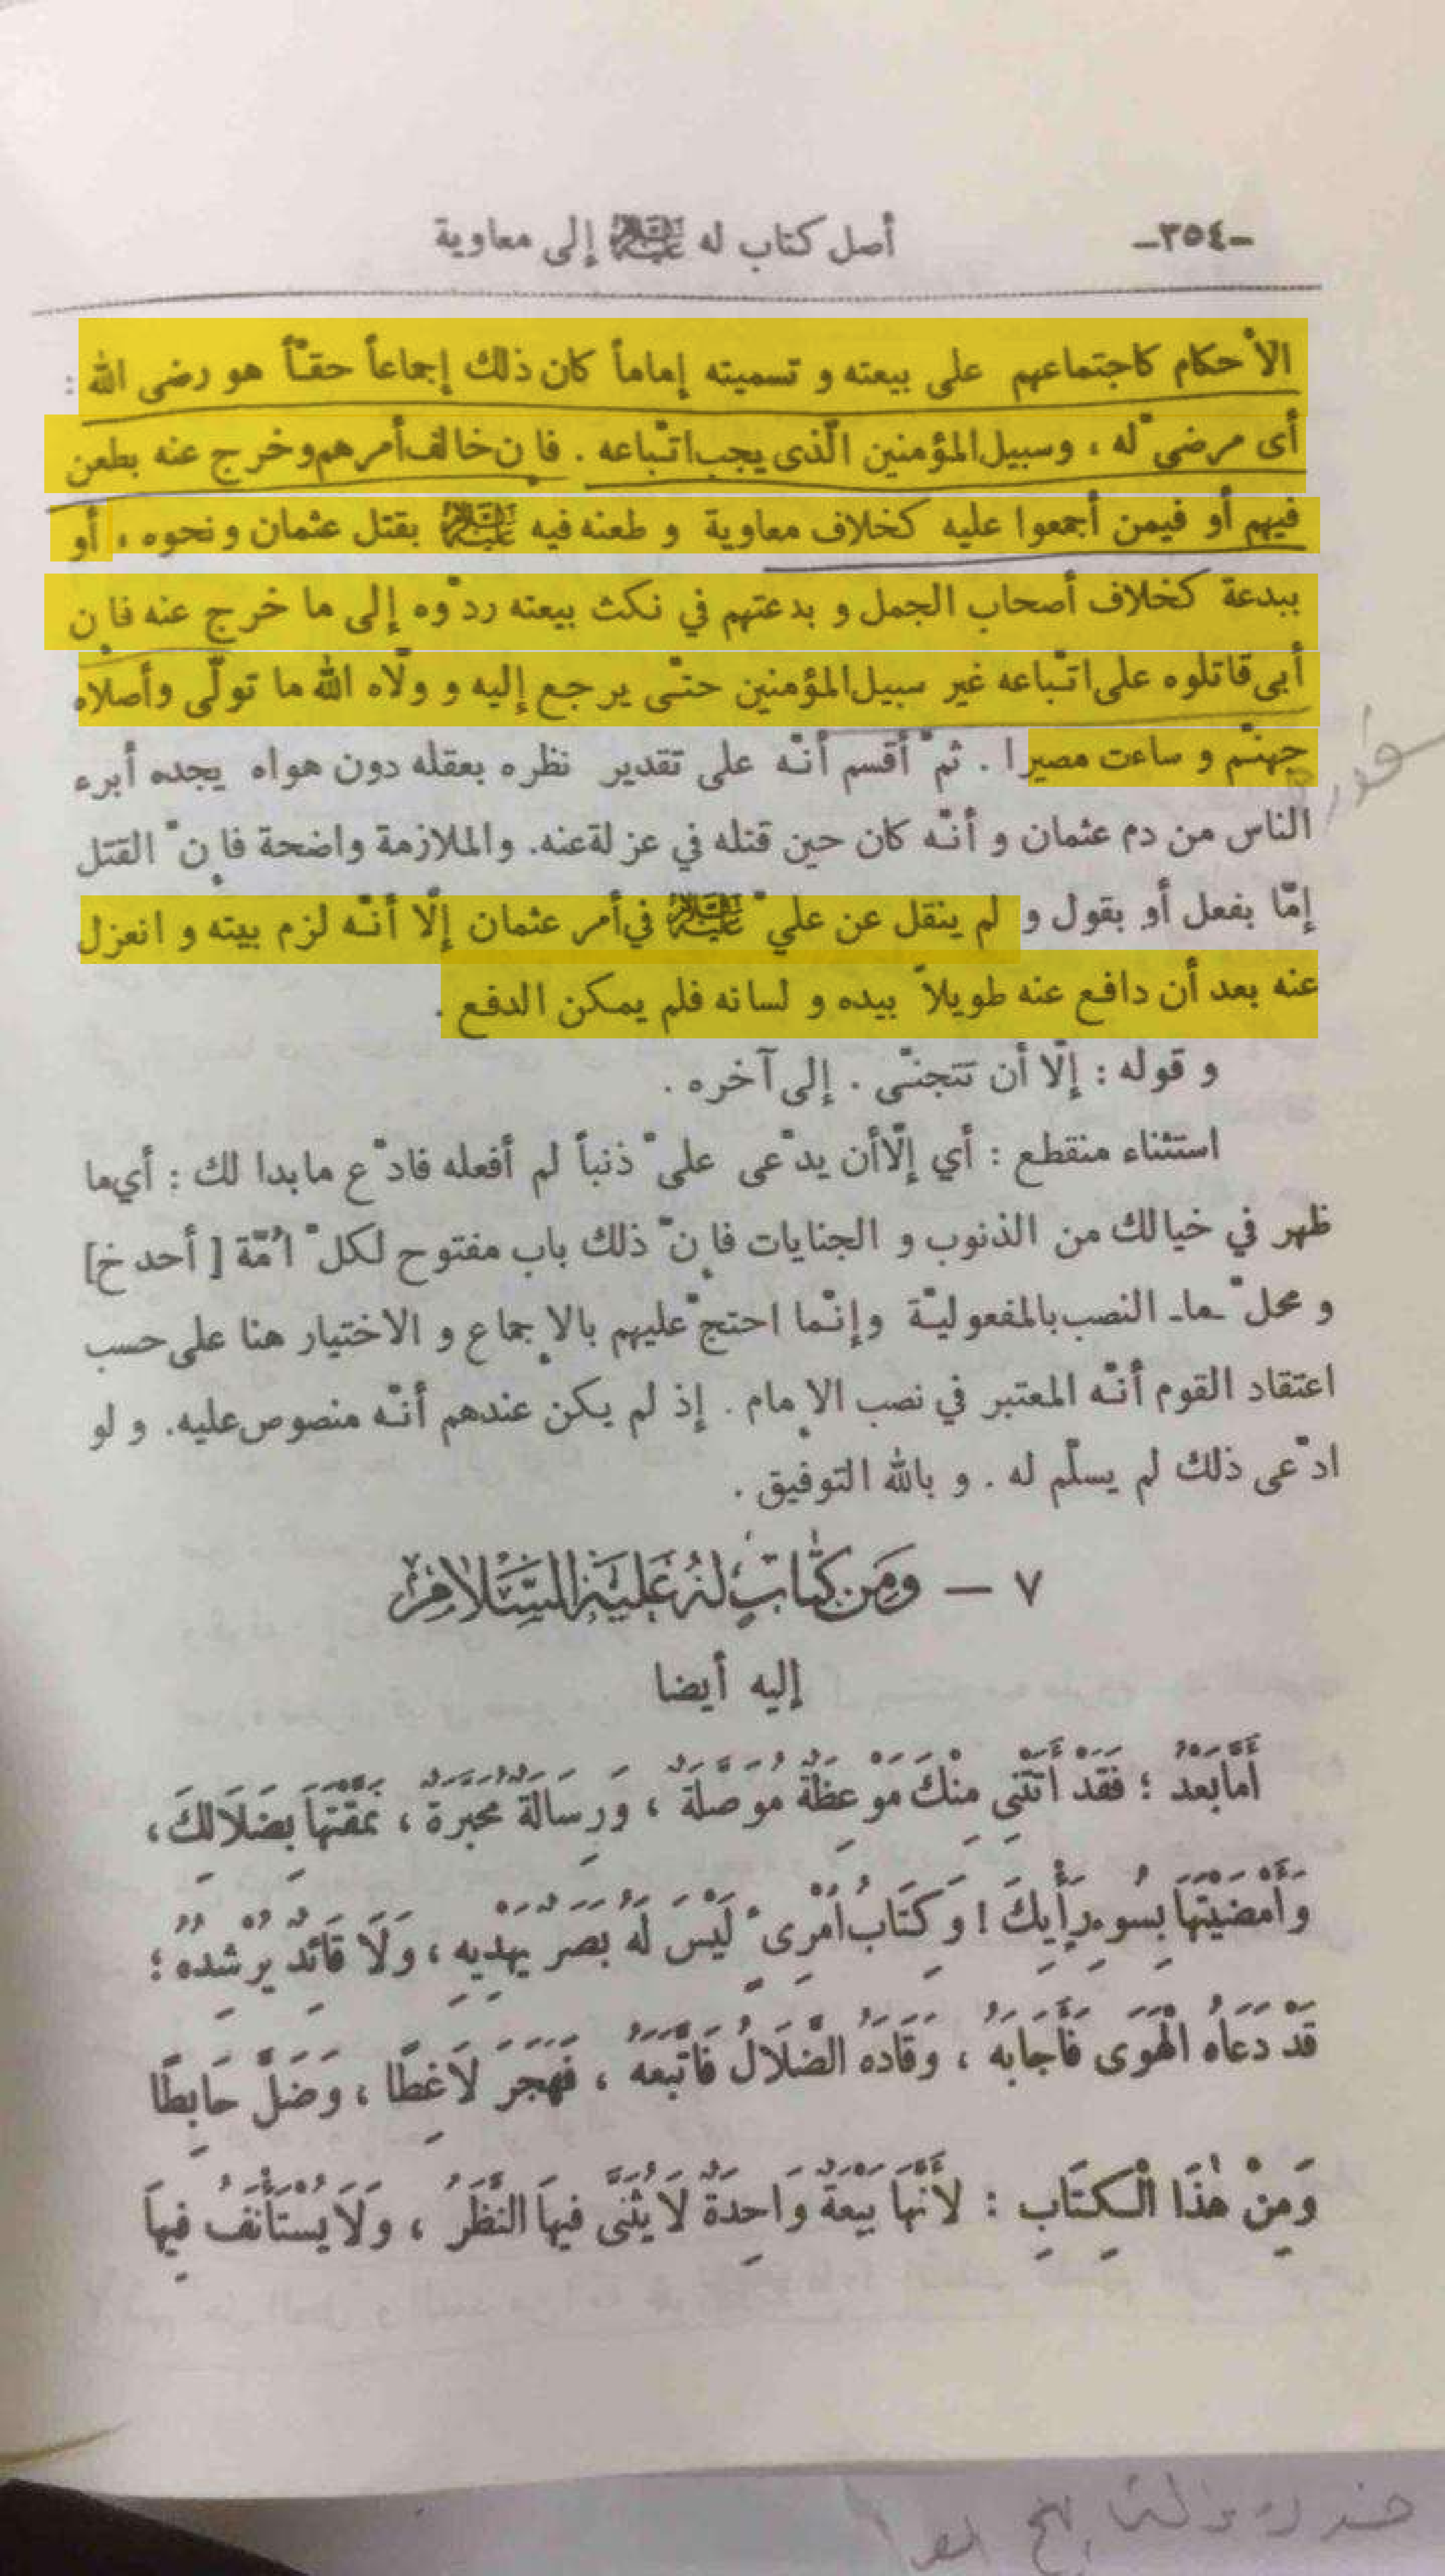 -٣٥٤- أصل كتاب له عليه السلام إلى معاوية
الأحكام كاجتماعهم على بيعته و تسميته إماماً كان ذلك إجماعاً حقّاً هو رضى الله :
أى مرضيّ له ، وسبيل المؤمنين الّذى يجب اتّباعه . فإن خالف أمرهم وخرج عنه بطعن
فيهم أو فيمن أجمعوا عليه كخلاف معاوية و طعنه فيه عليه السلام بقتل عثمان و نحوه ، أو
ببدعة كخلاف أصحاب الجمل و بدعتهم في نكث بيعته ردّوه إلى ما خرج عنه فإن
أبى قاتلوه على اتّباعه غير سبيل المؤمنين حتّى يرجع إليه و ولّاه الله ما تولّى وأصلاه
جهنّم و ساءت مصيرا . ثمّ أقسم أنّه على تقدير نظره بعقله دون هواه يجده أبرء
الناس من دم عثمان و أنّه كان حين قتله في عزلة عنه. والملازمة واضحة فإنّ القتل
إمّا بفعل أو بقول و لم ينقل عن عليّ عليه السلام في أمر عثمان إلّا أنّه لزم بيته و انعزل
عنه بعد أن دافع عنه طويلاً بيده و لسانه فلم يمكن الدفع .
و قوله : إلّا أن تتجنّى . إلى آخره .
استثناء منقطع : أي إلّا أن يدّعى علىّ ذنباً لم أفعله فادّع ما بدا لك : أي ما
ظهر في خيالك من الذنوب و الجنايات فإنّ ذلك باب مفتوح لكلّ اُمّة [ أحد خ]
و محلّ ـ ما ـ النصب بالمفعوليّة وإنّما احتجّ عليهم بالإجماع و الاختيار هنا على حسب
اعتقاد القوم أنّه المعتبر في نصب الإمام . إذ لم يكن عندهم أنّه منصوص عليه. و لو
ادّعى ذلك لم يسلّم له . و بالله التوفيق .
٧ – وَمِن كِتَابٍ لَهُ عَلَيْهِ السَّلَامُ
إليه أيضا
أَمَّا بَعْدُ ؛ فَقَدْ أَتَتْنِي مِنْكَ مَوْعِظَةٌ مُوَصَّلَةٌ ، وَرِسَالَةٌ مُحَبَّرَةٌ ، نَمَّقْتَهَا بِضَلَالِكَ ،
وَأَمْضَيْتَهَا بِسُوءِ رَأْيِكَ ! وَكِتَابُ امْرِىءٍ لَيْسَ لَهُ بَصَرٌ يَهْدِيهِ ، وَلَا قَائِدٌ يُرْشِدُهُ ؛
قَدْ دَعَاهُ الْهَوَى فَأَجَابَهُ ، وَقَادَهُ الضَّلَالُ فَاتَّبَعَهُ ، فَهَجَرَ لَاغِطًا ، وَضَلَّ خَابِطًا
وَمِنْ هٰذَا الْكِتَابِ : لأَنَّهَا بَيْعَةٌ وَاحِدَةٌ لَا يُثَنَّى فِيهَا النَّظَرُ ، وَلَا يُسْتَأْنَفُ فِيهَا